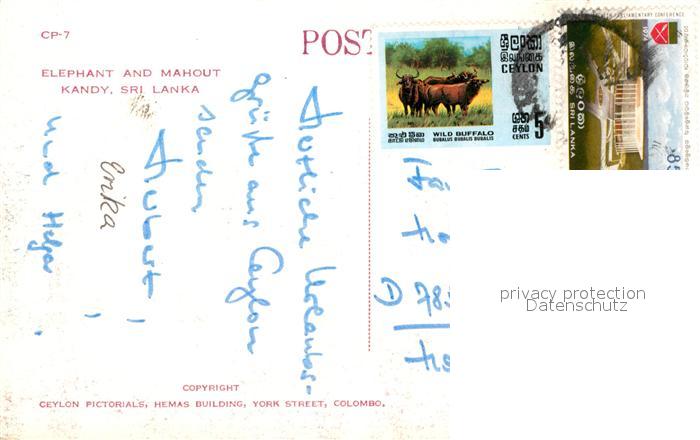 CP-7
ELEPHANT AND MAHOUT
KANDY, SRI LANKA
POST
ශ්‍රී ලංකා
இலங்கை
CEYLON
WILD BUFFALO
BUBALUS BUBALIS BUBALIS
5
CENTS
PARLIAMENTARY CONFERENCE
1974
ශ්‍රී ලංකා
இலங்கை
SRI LANKA
85
Herzliche Urlaubs-
grüße aus Ceylon
senden
Herbert,
Erika
und Helga.
D 78
privacy protection
Datenschutz
COPYRIGHT
CEYLON PICTORIALS, HEMAS BUILDING, YORK STREET, COLOMBO.